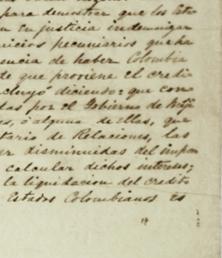 para demostrar que los Esta
en su justicia indemnizar
uicios pecuniarios que ha
uencia de haber Colombia
de que proviene el credi
cluyó diciendo: que con
das por el Gobierno de
es, ó alguna de ellas, que
tario de Relaciones, las
er disminuidas del impor
calcular dichos intereses;
la liquidacion del credito
Estados Colombianos es